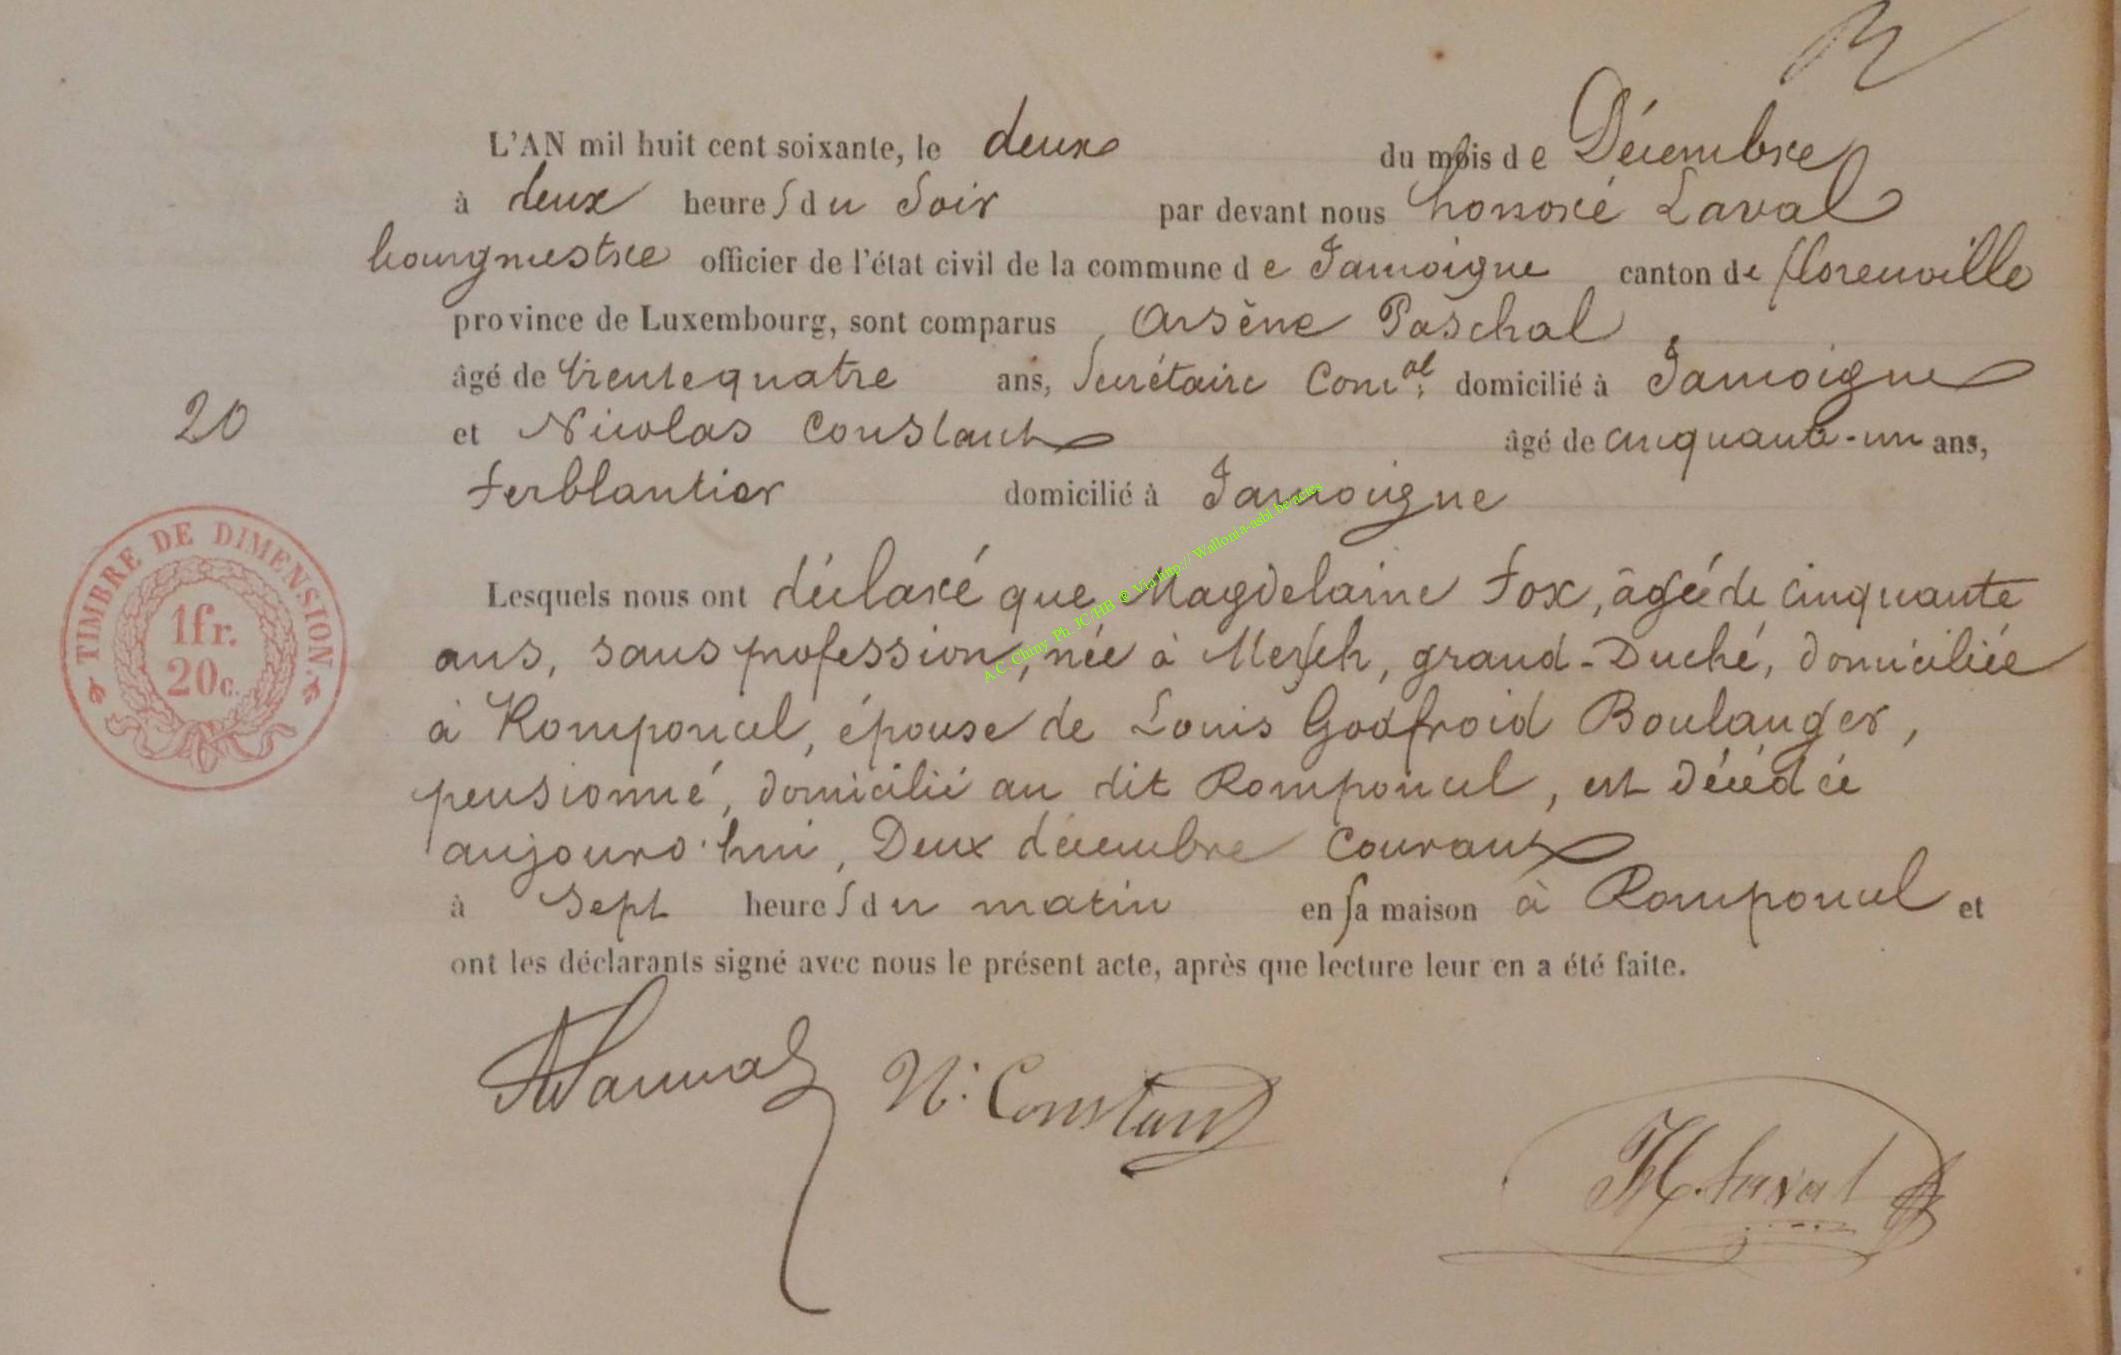 L'AN mil huit cent soixante, le deux du mois de Décembre
à deux heures du Soir par devant nous honoré Laval
bourgmestre officier de l'état civil de la commune de Jamoigne canton de florenville
province de Luxembourg, sont comparus Arsène Paschal,
âgé de trentequatre ans, Secrétaire Com.al domicilié à Jamoigne
20
et Nicolas Constant âgé de cinquante-un ans,
ferblantier domicilié à Jamoigne
TIMBRE DE DIMENSION.
1fr.
20c.
Lesquels nous ont déclaré que Magdelaine Fox, âgée de cinquante
ans, sans profession, née à Mersch, grand-Duché, domiciliée
à Romponcel, épouse de Louis Godfroid Boulanger,
pensionné, domicilié au dit Romponcel, est décédée
aujourd'hui, Deux décembre courant
à Sept heures du matin en sa maison à Romponcel et
ont les déclarants signé avec nous le présent acte, après que lecture leur en a été faite.
N. Constant
H. Laval
A.C. Chiny Ph. JC/HB @ Via http:// Wallonia-asbl.be/actes